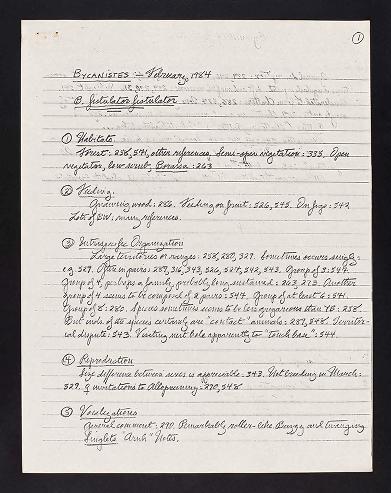 1
BYCANISTES - February, 1984
B. fistulator fistulator
① Habitats
Forest: 258, 541, other references. Semi-open vegetation: 335. Open
vegetation, low scrub, Borassus: 263
② Feeding.
Gnawing wood: 286. Feeding on fruit: 526, 545. On figs: 542
Lots of BW; many references.
③ Intraspecific Organization
Large territories or ranges: 258, 280, 327. Sometimes occurs singly:
e.g. 527. Often in pairs: 287, 316, 343, 526, 527, 542, 543. Group of 3: 544.
Group of 4, perhaps a family, probably long sustained: 263, 273. Another
group of 4 seems to be composed of 2 pairs: 544. Group of at least 6: 541.
Group of 8: 280. Species sometimes seems to be less gregarious than 258.
But inds. of the species certainly are "contact" animals: 287, 548. Territor-
ial dispute: 543. Visiting nest hole apparently to "touch base": 544.
④ Reproduction
Size difference between sexes is appreciable: 343. Not breeding in March:
527. invitations to Allopreening: 270, 548
⑤ Vocalizations
General comment: 270. Remarkably roller-like. Buzzy and twanging
Singlets "Arnk" Notes.